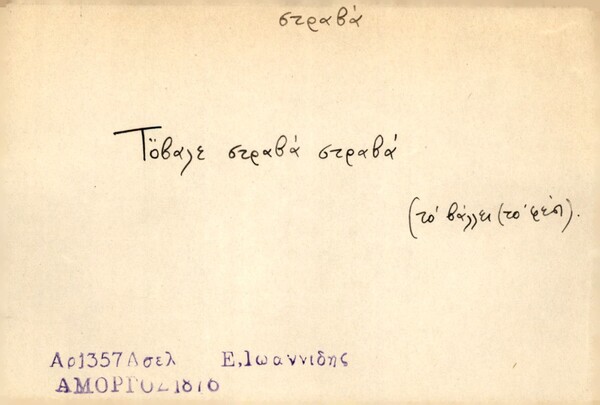 στραβά
Τὄβαλε στραβά στραβά
(τό βάλλει (τό φέσι).
Αρ1357Ασελ Ε,Ιωαννιδης
ΑΜΟΡΓΟΣ1876